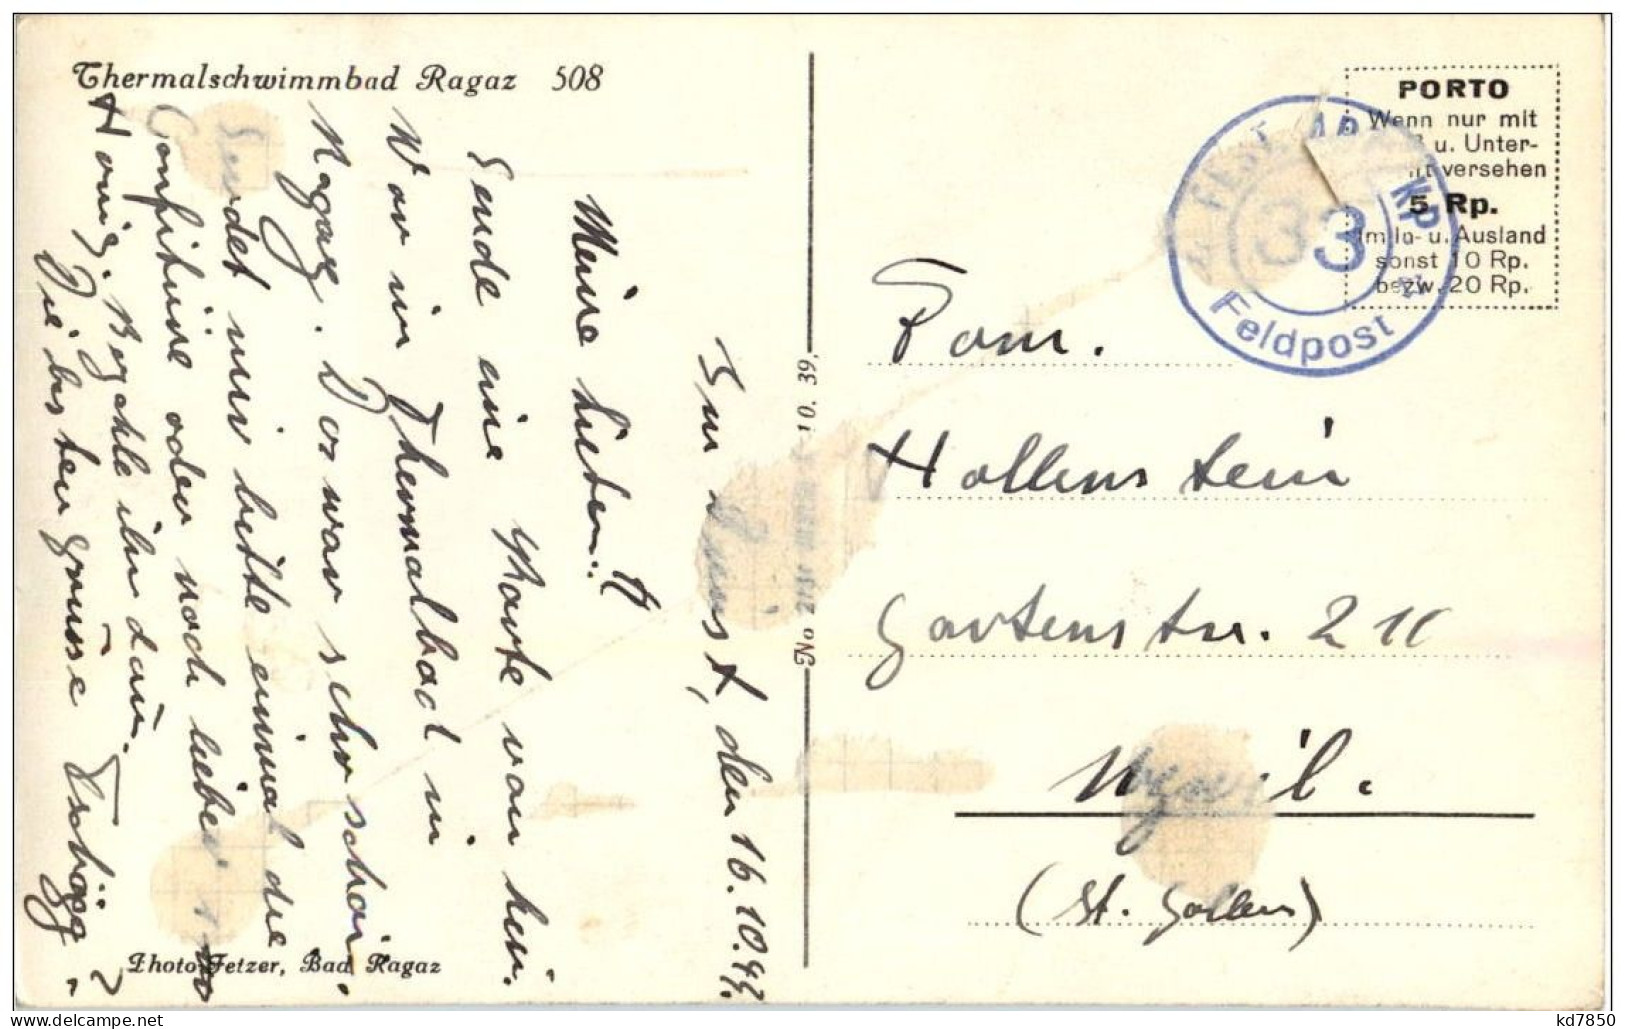 Thermalschwimmbad Ragaz 508
den 16.10.43.
Meine Lieben!!
Sende eine Karte von hier.
War im Thermalbad in
Ragaz. Das war sehr schön.
Sendet mir bitte einmal die
Confitüre oder noch lieber
Honig. Bezahle ihn dann.
Die besten Grüsse
Photo Fetzer, Bad Ragaz
No 2151 10. 39.
PORTO
Wenn nur mit
u. Unter-
versehen
5 Rp.
Im In- u. Ausland
sonst 10 Rp.
bezw. 20 Rp.
FEST. ART. KP
33
Feldpost
Fam.
Hollenstein
Gartenstr.
Wyl.
(St. Gallen)
kd7850